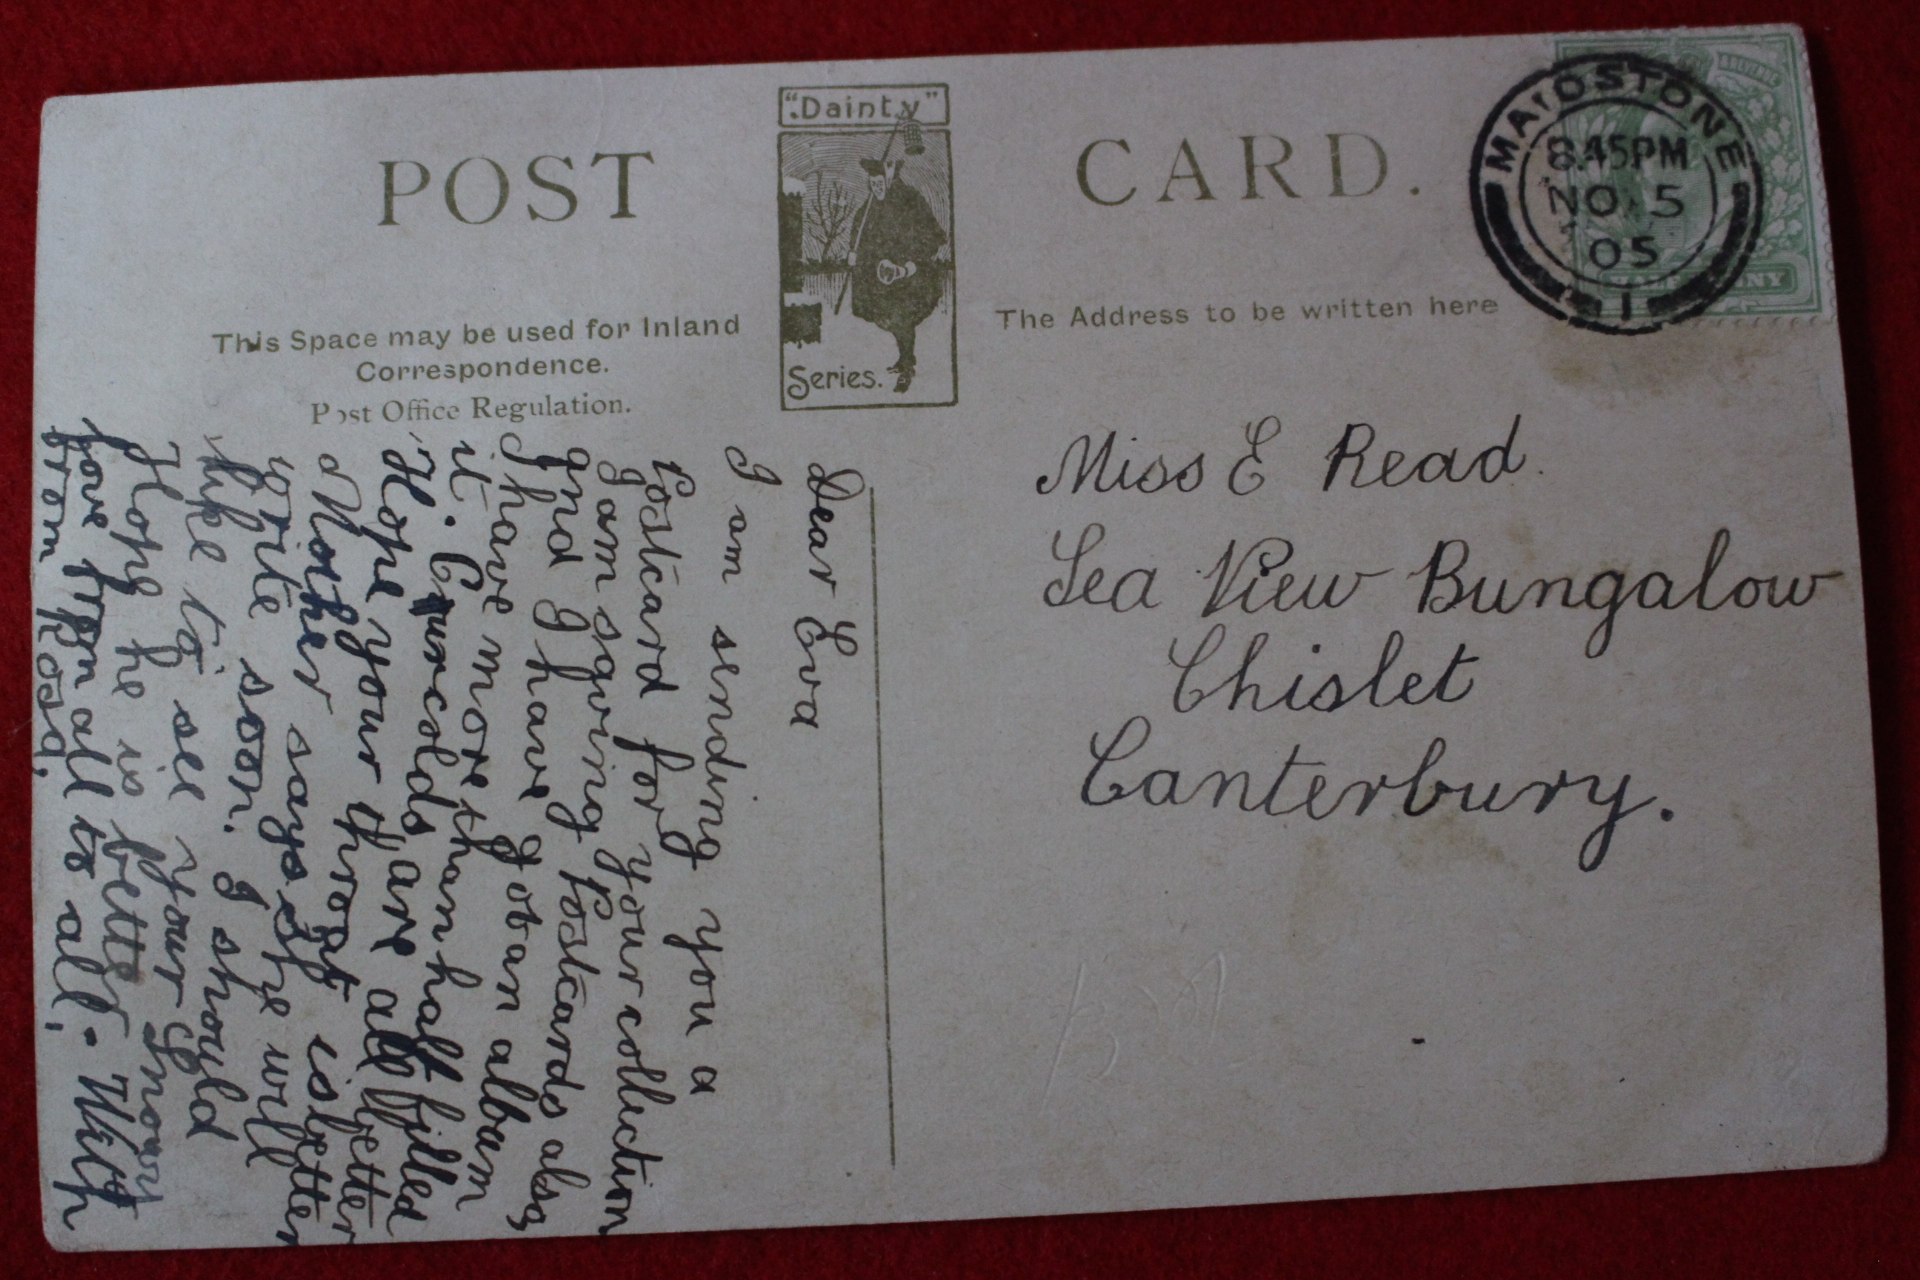 "Dainty"
Series.
POST CARD.
This Space may be used for Inland
Correspondence.
Post Office Regulation.
The Address to be written here
MAIDSTONE
8.45PM
NO 5
05
1
REVENUE
HALFPENNY
Miss E Read.
Sea View Bungalow
Chislet
Canterbury.
Dear Eva
I am sending you a
Postcard for your collection
I am saving Postcards also
and I have got an album
I have more than half filled
it. Our colds are all better
Hope your throat is better
Mother says she will
write soon. I should
like to see your
Hope he is better. With
love from all to all.
from Rosa.